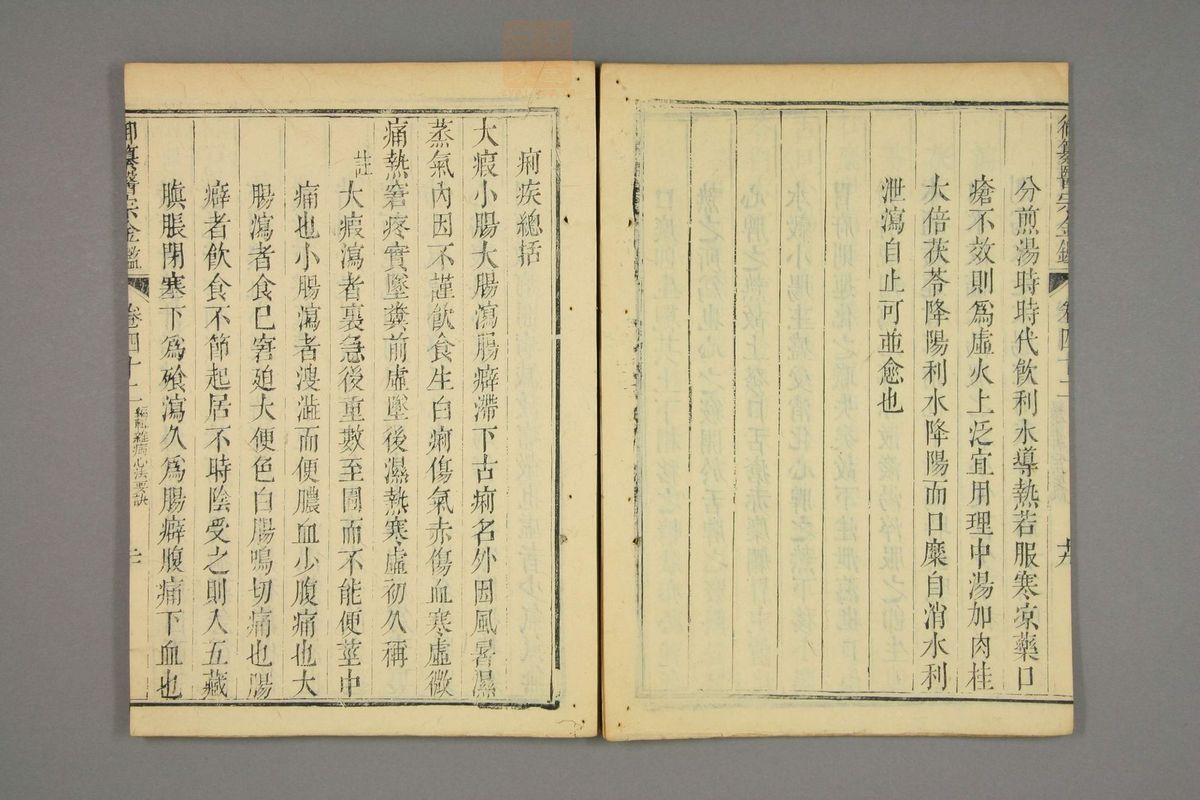 分煎湯時時代飲利水導熱若服寒凉藥口
瘡不效則爲虛火上泛宜用理中湯加肉桂
大倍茯苓降陽利水降陽而口糜自消水利
泄瀉自止可並愈也
痢疾總括
大瘕小腸大腸瀉腸癖滯下古痢名外因風暑濕
蒸氣內因不謹飲食生白痢傷氣赤傷血寒虛微
痛熱窘疼實墜糞前虛墜後濕熱寒虛初久稱
註
大瘕瀉者裏急後重數至圊而不能便莖中
痛也小腸瀉者溲澁而便膿血少腹痛也大
腸瀉者食已窘廹大便色白腸鳴切痛也腸
癖者飲食不節起居不時陰受之則入五藏
䐜脹閉塞下爲飱瀉久爲腸癖腹痛下血也
御纂醫宗金鑑
卷四十二
編輯雜病心法要訣